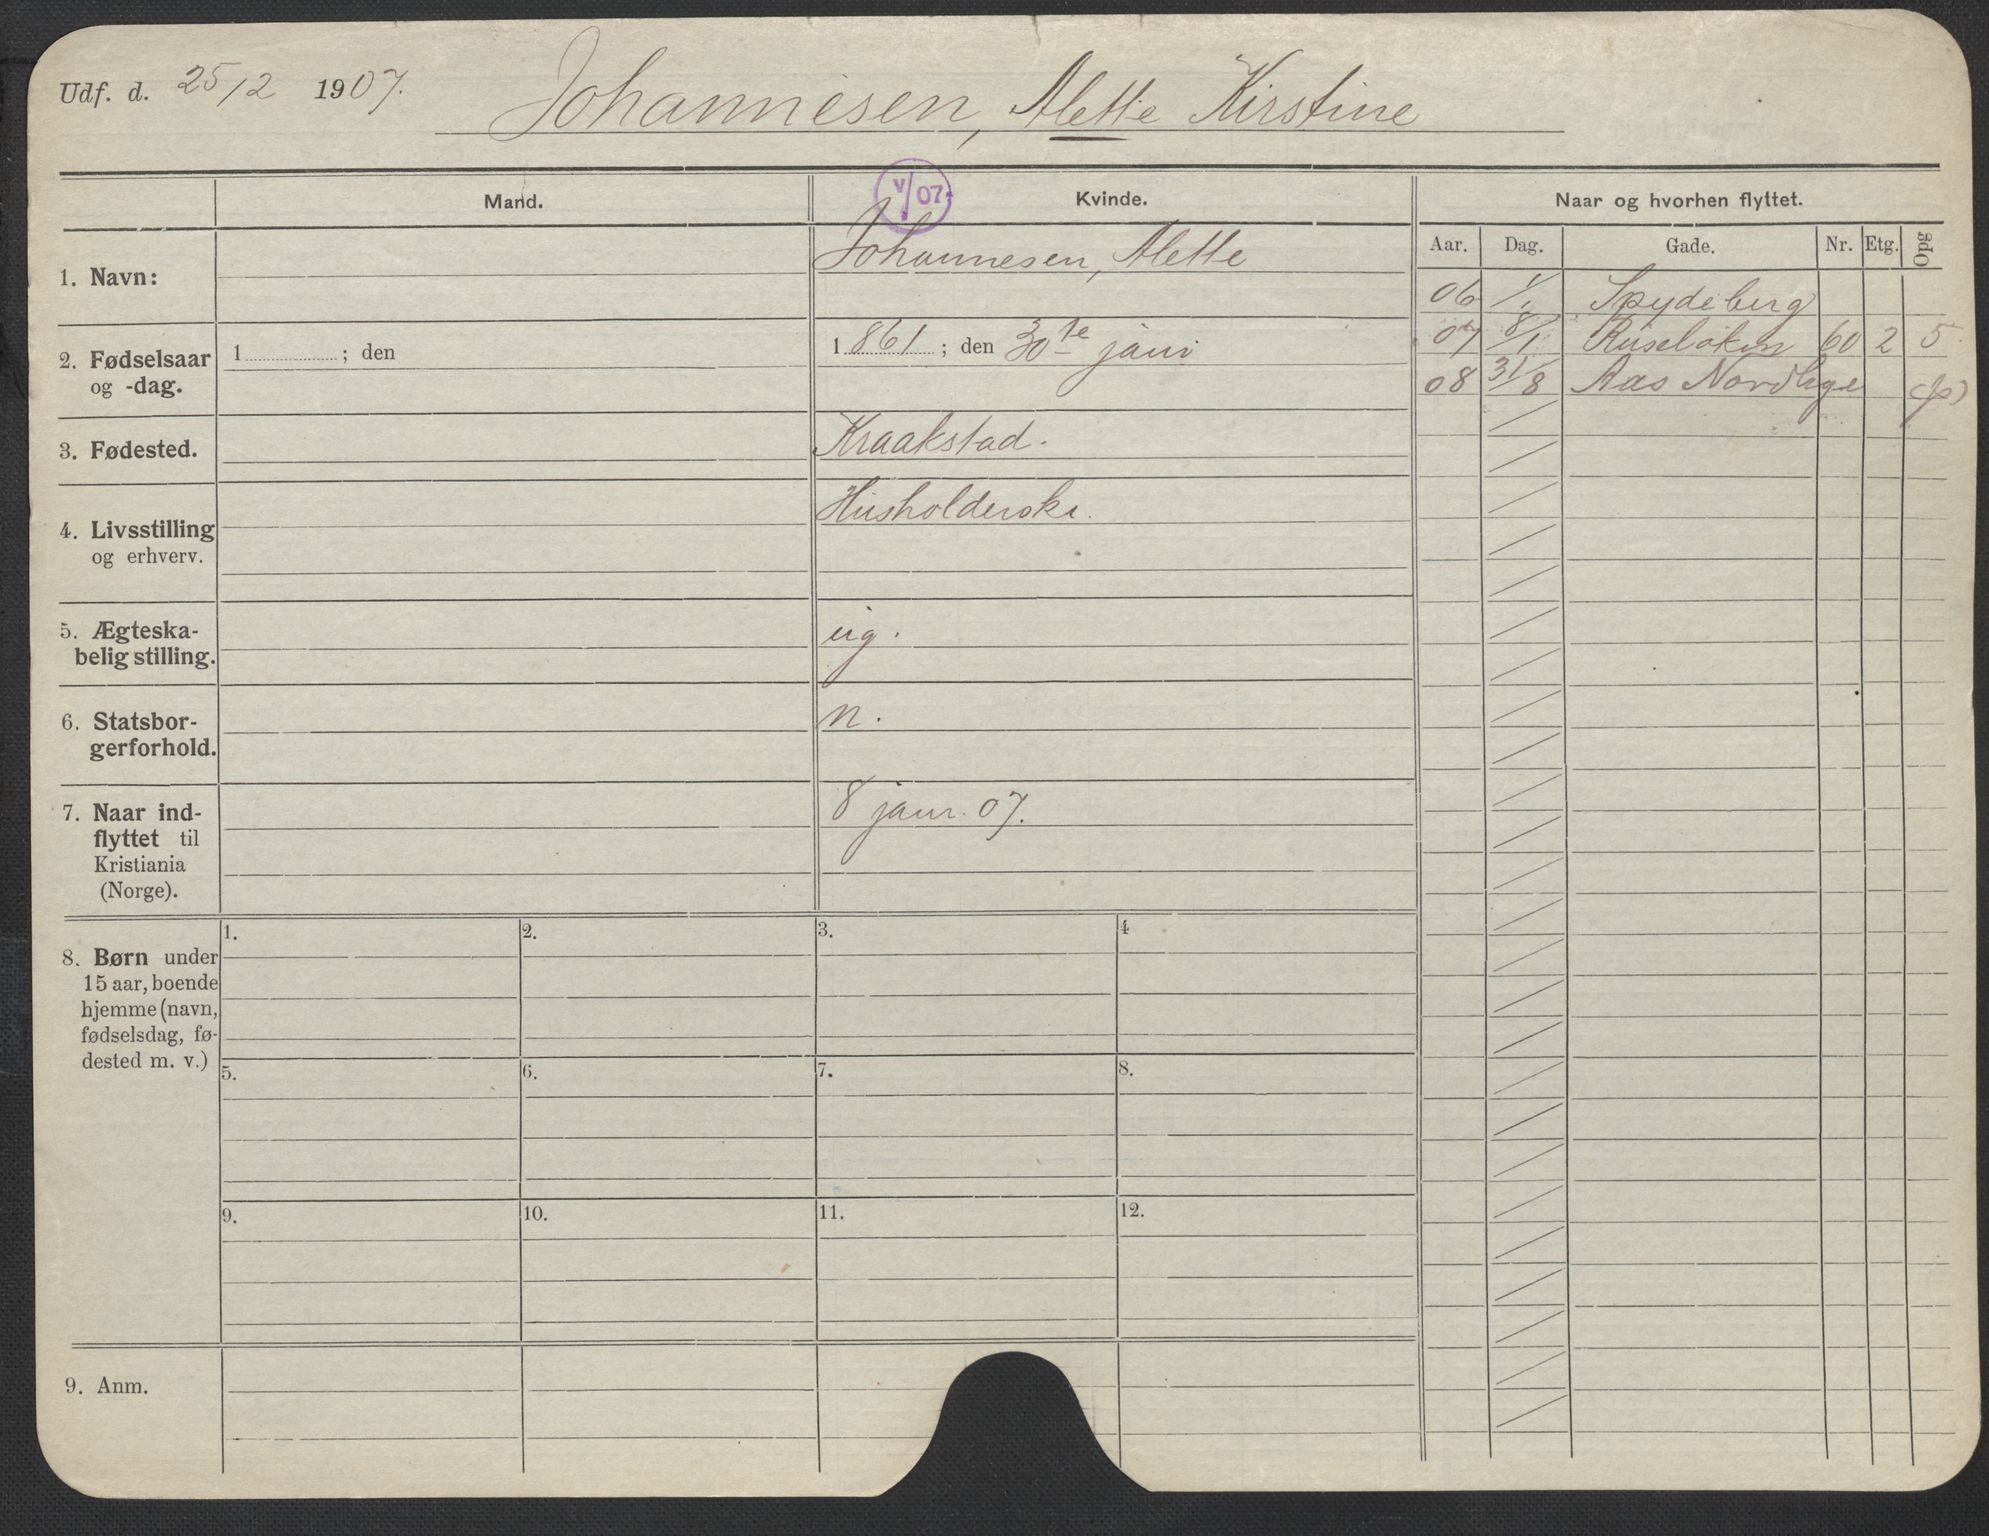 Udf. d. 25/2 1907. Johannesen, Alette Kirstine
Mand. Kvinde. Naar og hvorhen flyttet.
V/07
Aar. Dag. Gade. Nr. Etg. Opg
1. Navn: Johannesen, Alette
06 1/ Spydeberg
07 8/1 Ruseløken 60 2 5
08 31/8 Aas Nordbye
2. Fødselsaar og -dag. 1 ; den 1861 ; den 30te janr
3. Fødested. Kraakstad.
4. Livsstilling og erhverv. Husholderske.
5. Ægteska-
belig stilling. ug.
6. Statsbor-
gerforhold. n.
7. Naar ind-
flyttet til
Kristiania
(Norge). 8 janr. 07.
8. Børn under
15 aar, boende
hjemme (navn,
fødselsdag, fø-
dested m. v.)
1. 2. 3. 4
5. 6. 7. 8.
9. 10. 11. 12.
9. Anm.